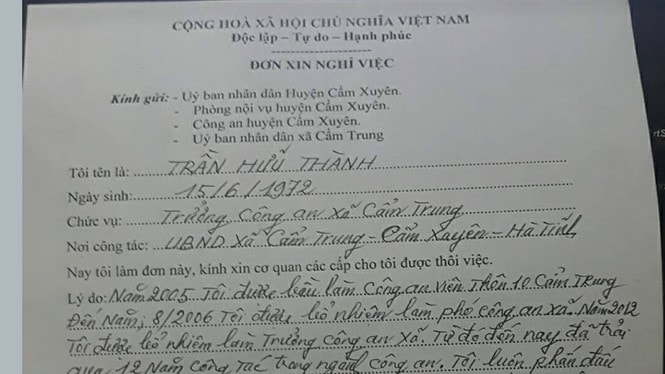 CỘNG HOÀ XÃ HỘI CHỦ NGHĨA VIỆT NAM
Độc lập – Tự do – Hạnh phúc
ĐƠN XIN NGHỈ VIỆC
Kính gửi: - Uỷ ban nhân dân Huyện Cẩm Xuyên.
- Phòng nội vụ huyện Cẩm Xuyên.
- Công an huyện Cẩm Xuyên.
- Uỷ ban nhân dân xã Cẩm Trung
Tôi tên là: TRẦN HỮU THÀNH
Ngày sinh: 15/6/1972
Chức vụ: Trưởng Công an xã Cẩm Trung
Nơi công tác: UBND xã Cẩm Trung – Cẩm Xuyên – Hà Tĩnh
Nay tôi làm đơn này, kính xin cơ quan các cấp cho tôi được thôi việc.
Lý do: Năm 2005 Tôi được bầu làm Công an viên Thôn 10 Cẩm Trung
Đến Năm, 8/2006 Tôi được bổ nhiệm làm phó công an xã. Năm 2012
Tôi được bổ nhiệm làm Trưởng công an xã. Từ đó đến nay đã trải
qua 12 Năm công tác trong ngành công an. Tôi luôn phấn đấu